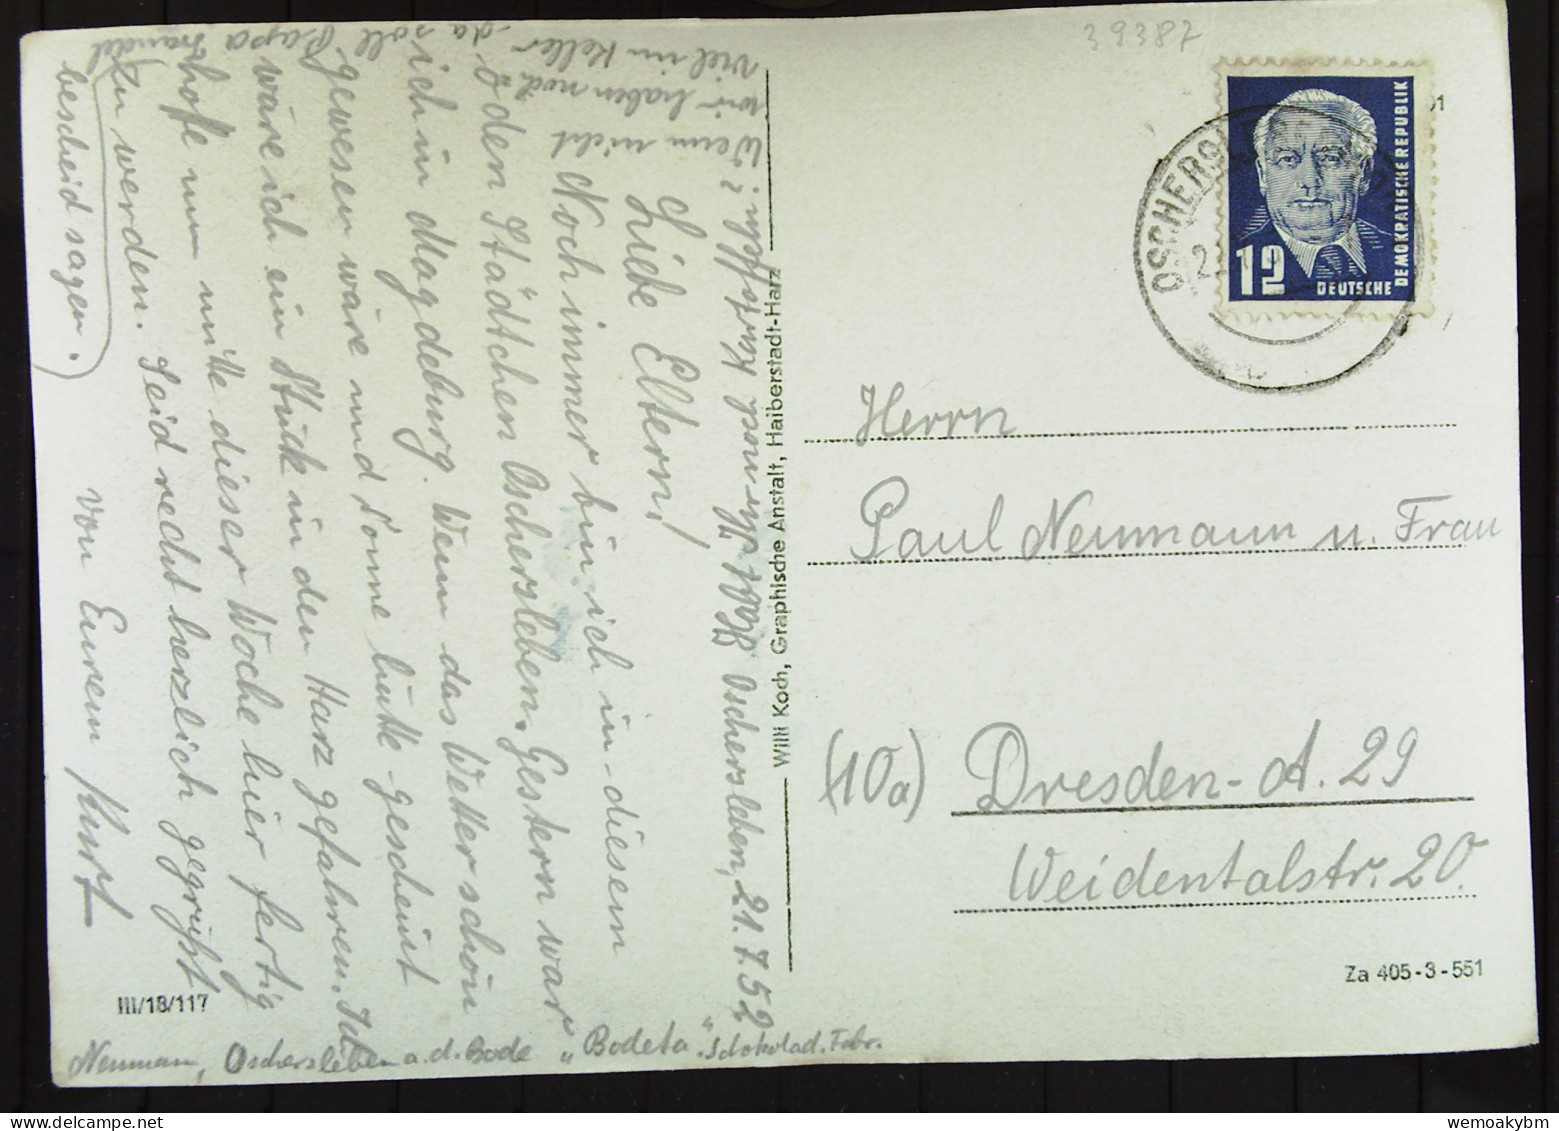 39387
12
DEUTSCHE
DEMOKRATISCHE REPUBLIK
OSCHERS
01
Herrn
Paul Neumann u. Frau
(10a) Dresden-A. 29
Weidentalstr. 20.
Za 405-3-551
Willi Koch, Graphische Anstalt, Halberstadt-Harz
Oschersleben, 21.7.52
Liebe Eltern!
Noch immer bin ich in diesem
Städtchen Oschersleben. Gestern war
ich in Magdeburg. Wenn das Wetter schön
gewesen wäre und Sonne hätte gescheint
wäre ich ein Stück in den Harz gefahren. Ich
hoffe nun mitte dieser Woche hier fertig
zu werden. Seid recht herzlich gegrüßt
von Eurem Kurt
Wenn nicht
wir haben noch
viel im Keller
da soll Papa
bescheid sagen.
III/18/117
Neumann, Oschersleben a. d. Bode "Bodeta" Schokolad. Fabr.
wemoakybm